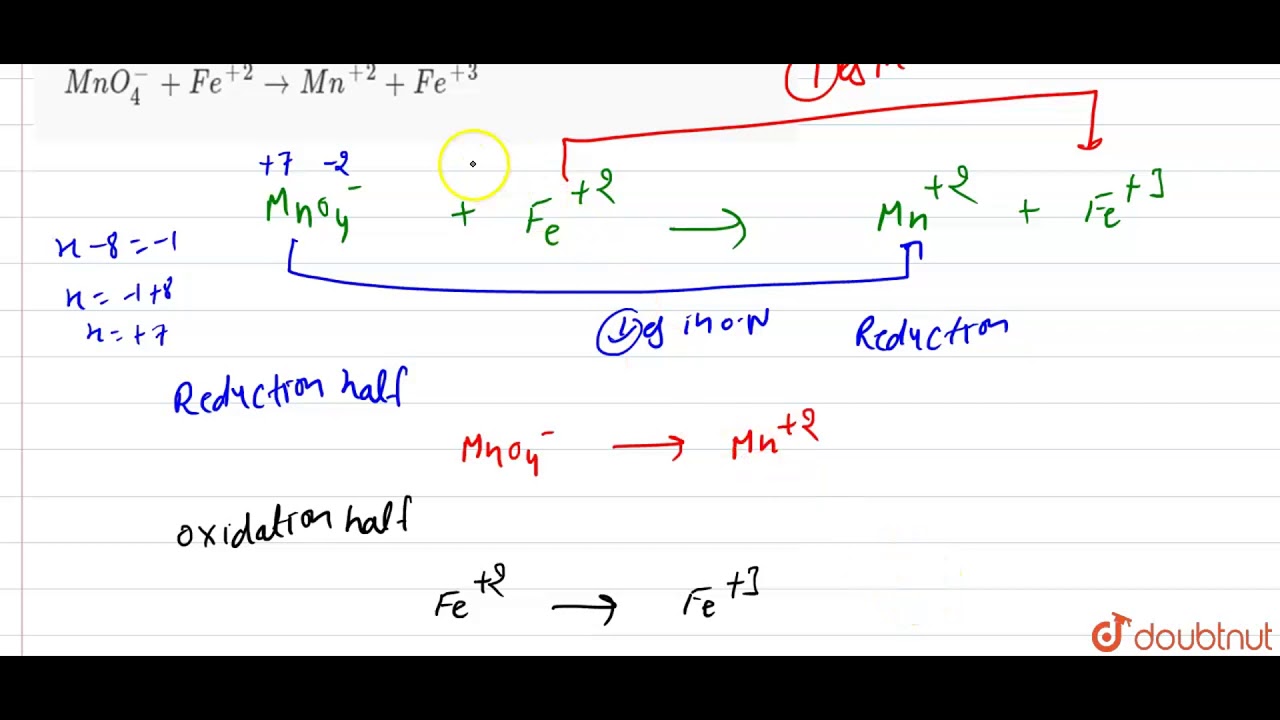 MnO₄⁻ + Fe⁺² → Mn⁺² + Fe⁺³
+7 -2
MnO₄⁻ + Fe⁺² → Mn⁺² + Fe⁺³
x - 8 = -1
x = -1+8
x = +7
↓es in O.N Reduction
Reduction half
MnO₄⁻ → Mn⁺²
oxidation half
Fe⁺² → Fe⁺³
doubtnut